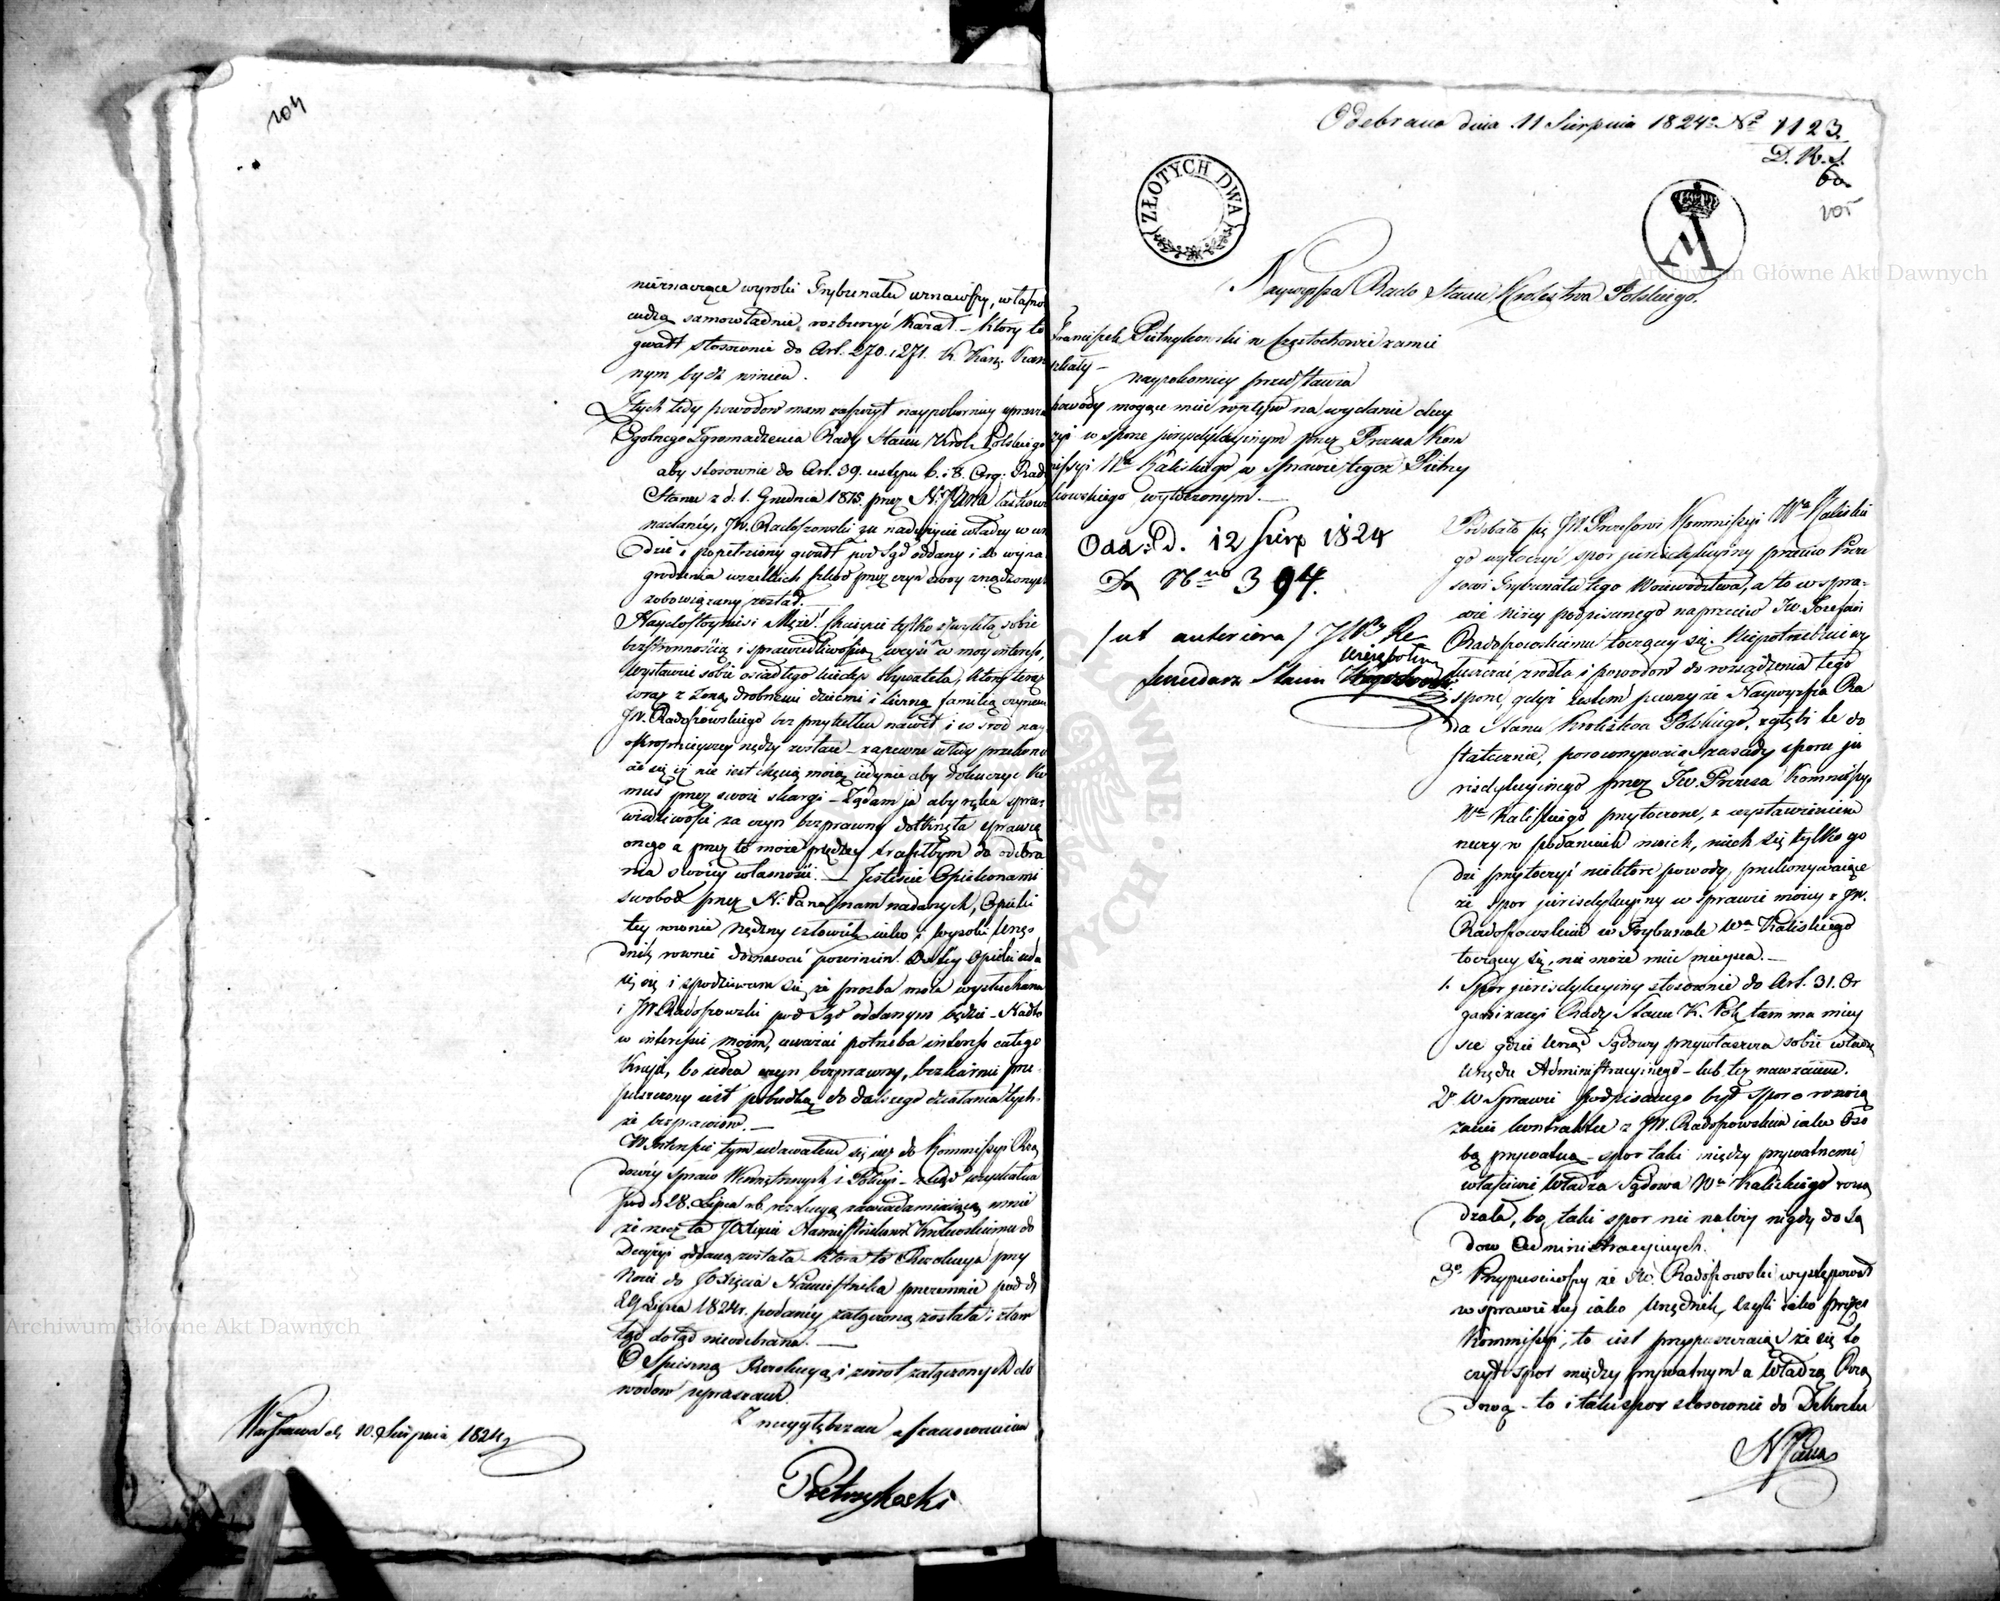 104
nieznaiące wyroki Trybunału uznawszy, własno
cudzą samowładnie rozburzyć kazał. – który to
gwałt stosownie do Art. 270. i 271. K. Karz. Karz
nym bydź winien.
Z tych tedy powodow mam zaszczyt naypokorniey upraszać
Ogolnego Zgromadzenia Rady Stanu Krol. Polskiego
aby stosownie do Art. 39. ustępu 6. i 8. Org: Rady
Stanu z d: 1. Grudnia 1815. przez N: Pana łaskawie
nadaney, JW. Radoszewski za nadużycie władzy w urzę
dzie i popełniony gwałt pod Sąd oddany i do wyna
grodzenia wszelkich szkod przez czyn swoy zrządzonych
zobowiązany został.
Naydostoynieysi Mężo! chcieycie tylko chwilkę sobie
bezstronnością i sprawiedliwością weyść w moy interess,
wystawić sobie osiadłego kiedyś obywatela, ktory teraz
wraz z żoną, drobnemi dziećmi i liczną familią czynem
JW. Radoszewskiego bez przytułku nawet i w srod nay
okropnieyszey nędzy zostaie – zapewne wtedy przekona
cie się iż nie iest chęcią moią iedynie aby dokuczyc ko
muś przez swoie skargi – Żądam ja aby ręka spra
wiedliwości za czyn bezprawny dotknęła sprawcę
onego a przez to może prędzey trafiłbym do odebra
nia swoiey własności. – Jesteście Opiekunami
swobod przez N: Pana nam nadanych, Opieki
tey rownie nędzny człowiek iako i wysoki Urzę
dnik rownie doznawać powinien. Do tey Opieki uda
ię się i spodziewam się że prozba moia wysłuchana
i JW. Radoszewski pod Sąd oddanym będzie – Nadto
w interessie moim, uważać potrzeba interess całego
Kraju, bo ieden czyn bezprawny, bezkarnie prze
puszczony iest pobudką do dalszego działania tych-
że bezprawiow. –
W Interessie tym udawałem się iuż do Kommissyi Rzą
dowey Spraw Wewnętrznych i Policyi – zkąd uzyskałem
pod d. 28. Lipca r.b. rezolucyą zawiadamiaiącą mnie
że rzecz ta JO. Xięciu Namiestnikowi Krolewskiemu do
Decyzyi oddaną została – ktora to Rezolucya przy
Nocie do JO. Xięcia Namiestnika przezemnie pod d.
29. Lipca 1824 r. podaney załączoną została i ztam
tąd dotąd nieodebrana. –
O spieszną Rezolucyą i zwrot załączonych do
wodow upraszam.
Z naygłębszem uszanowaniem
Warszawa d. 10. Sierpnia 1824 r.
Pietrzykoski
Odebrano dnia 11 Sierpnia 1824 r. No 1123.
D. R. S.
105
ZŁOTYCH DWA
A
Naywyższa Rado Stanu Krolestwa Polskiego.
Franciszek Pietrzykowski w Częstochowie zamie
szkały –
naypokorniey przedstawia
powody mogące mieć wpływ na wydanie decy
zyi w sporze jurysdykcyinym przez Prezesa Kom
missyi Wa Kaliskiego w sprawie tegoż Pietrzy
kowskiego wytoczonym. –
Odd: d. 12 Sierp 1824
Do No 394.
/ut anteriora/ JW. Re
ferendarz Stanu
Podobało się JW. Prezesowi Kommissyi Wa Kaliskie
go wytoczyć spor jurisdykcyiny przeciw Preze
sowi Trybunału tego Woiewodztwa, a to w spra-
wie niżey podpisanego naprzeciw JW. Jozefowi
Radoszewskiemu toczącey się. Niepotrzebuię wy
łuszczać zrodła i powodow do rozsądzenia tego
sporu, gdyż iestem pewny że Naywyższa Ra
da Stanu Krolestwa Polskiego, zgłębi ie do
statecznie, porownywaiąc zasady sporu ju
risdykcyinego przez JW. Prezesa Kommissyi
Wa Kaliskiego przytoczone, z wystawieniem
rzeczy w podaniach moich, niech się tylko go
dzi przytoczyć niektore powody, przekonywaiące
że spor jurisdykcyiny w sprawie moiey z JW.
Radoszewskim w Trybunale Wa Kaliskiego
toczącey się, nie może mieć mieysca. –
1. Spor jurisdykcyiny stosownie do Art. 31. Or
ganizacyi Rady Stanu K. Pol. tam ma miey
sce gdzie Urząd Sądowy przywłaszcza sobie władzę
Urzędu Administracyinego – lub też nawzaiem.
2. W Sprawie podpisanego był spor o rozwią
zanie kontraktu z JW. Radoszewskim iako Oso
bą prywatną – spor taki między prywatnemi
właściwie Władza Sądowa Wa Kaliskiego rozsą
dzała, bo taki spor nie należy nigdy do Są
dow Administracyinych.
3o Przypuściwszy że JW. Radoszewski występował
w sprawie tey iako Urzędnik, czyli iako prezes
Kommissyi, to iest przypuszczaiąc że się to
czył spor między prywatnym a Władzą Rzą
dową – to i taki spor stosownie do Dekretu
N Pana
Archiwum Główne Akt Dawnych
Archiwum Główne Akt Dawnych